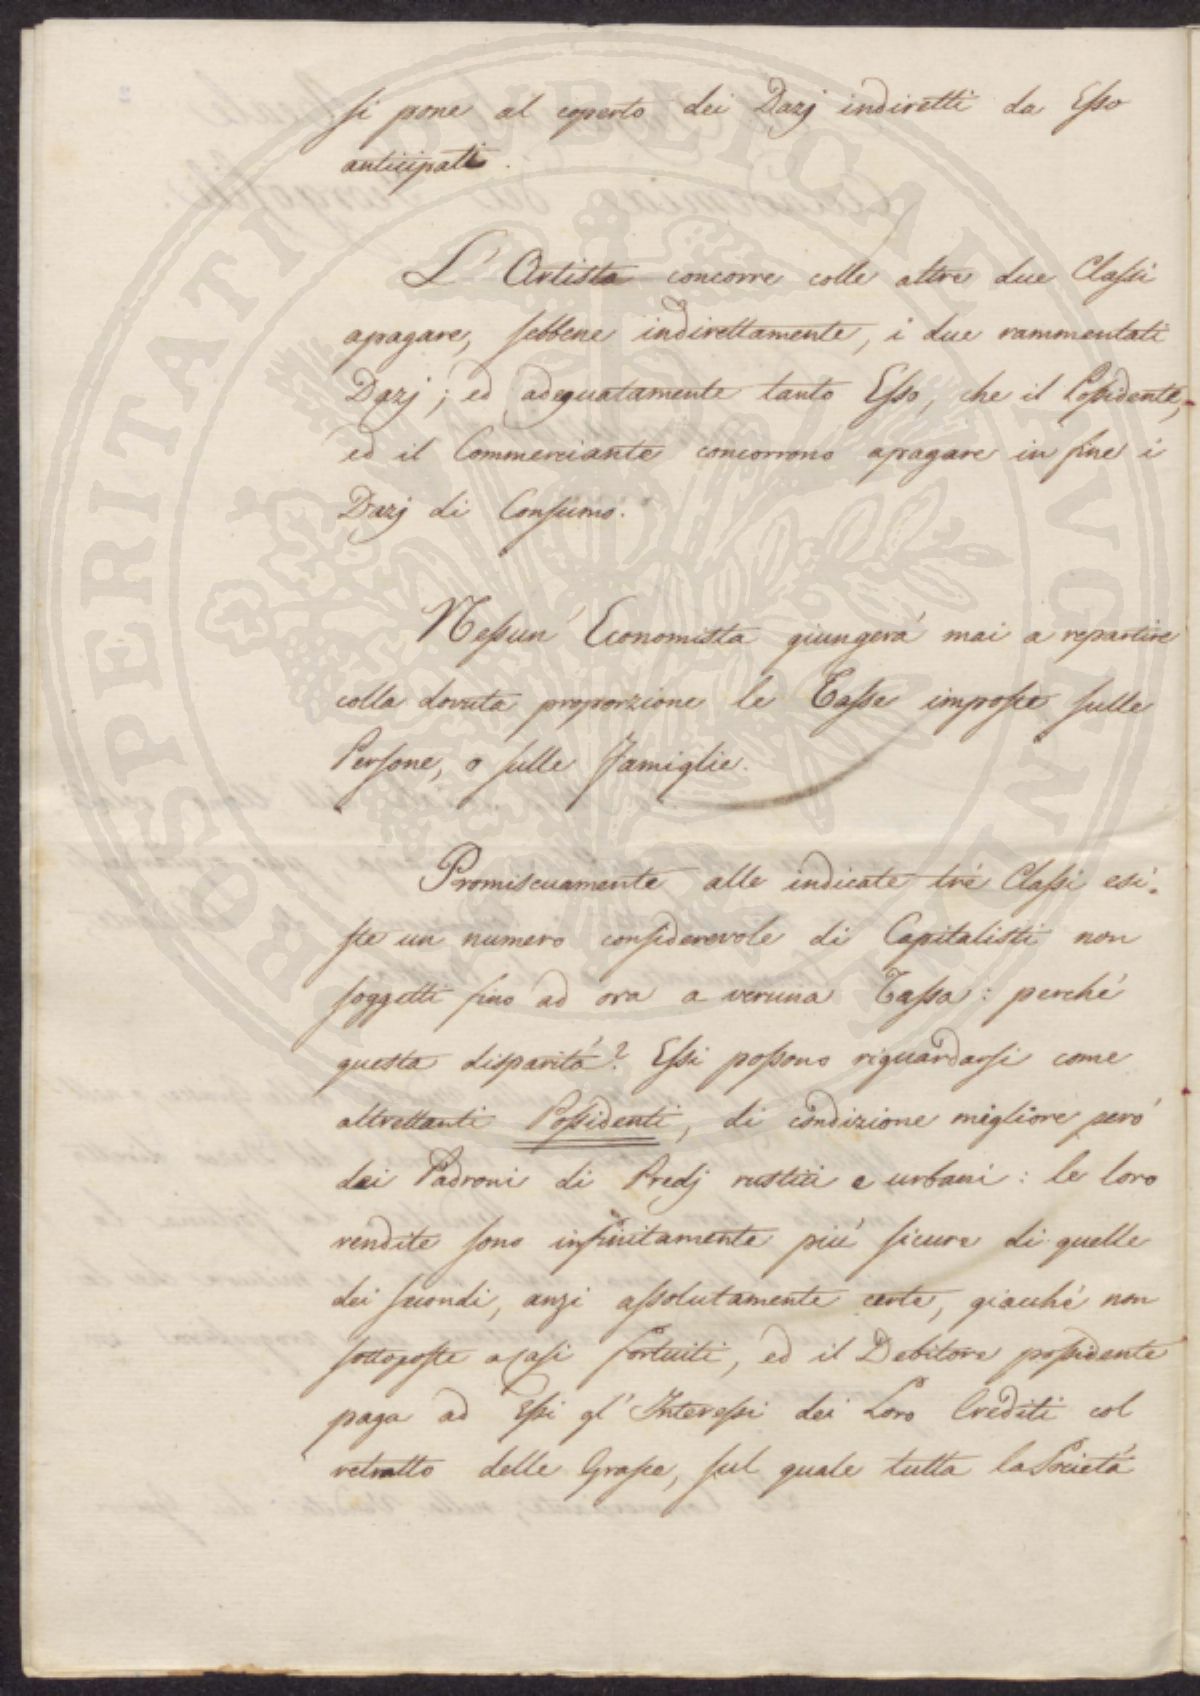 si pone al coperto dei Dazj indiretti da Esso
anticipati.
L'Artista concorre colle altre due Classi
apagare, sebbene indirettamente, i due rammentati
Dazj; ed adeguatamente tanto Esso, che il Possidente,
ed il Commerciante concorrono apagare in fine i
Dazj di Consumo.
Nessun' Economista giungerá mai a repartire
colla dovuta proporzione le Tasse imposte sulle
Persone, o sulle Famiglie.
Promiscuamente alle indicate tré Classi esi-
ste un numero considerevole di Capitalisti non
soggetti fino ad ora a veruna Tassa: perché
questa disparitá? Essi possono riguardarsi come
altrettanti Possidenti, di condizione migliore peró
dei Padroni di Predj rustici e urbani: le loro
rendite sono infinitamente piú sicure di quelle
dei secondi, anzi assolutamente certe, giacché non
sottoposte a casi fortuiti, ed il Debitore possidente
paga ad Essi gl'Interessi dei Loro Crediti col
retratto delle Grasce, sul quale tutta la Societá
PROSPERITATI PUBLICAE AUGENDAE